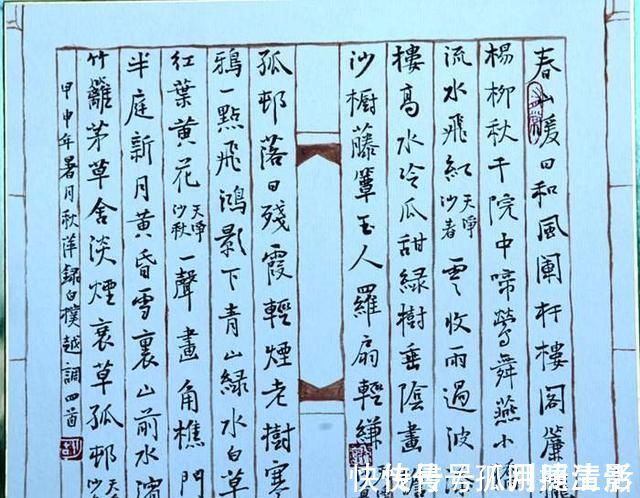 春山暖日和風闌杆樓閣簾
楊柳秋千院中啼鶯舞燕小
流水飛紅 天淨沙春 雲收雨過波
樓高水冷瓜甜綠樹垂陰畫
沙橱藤簟玉人羅扇輕縑
孤邨落日殘霞輕煙老樹寒
鴉一點飛鴻影下青山綠水白草
紅葉黃花 天淨沙秋 一聲畫角樵門
半庭新月黃昏雪裏山前水濱
竹籬茅草舍淡煙衰草孤邨
甲申年暑月秋萍錄白樸越調四首